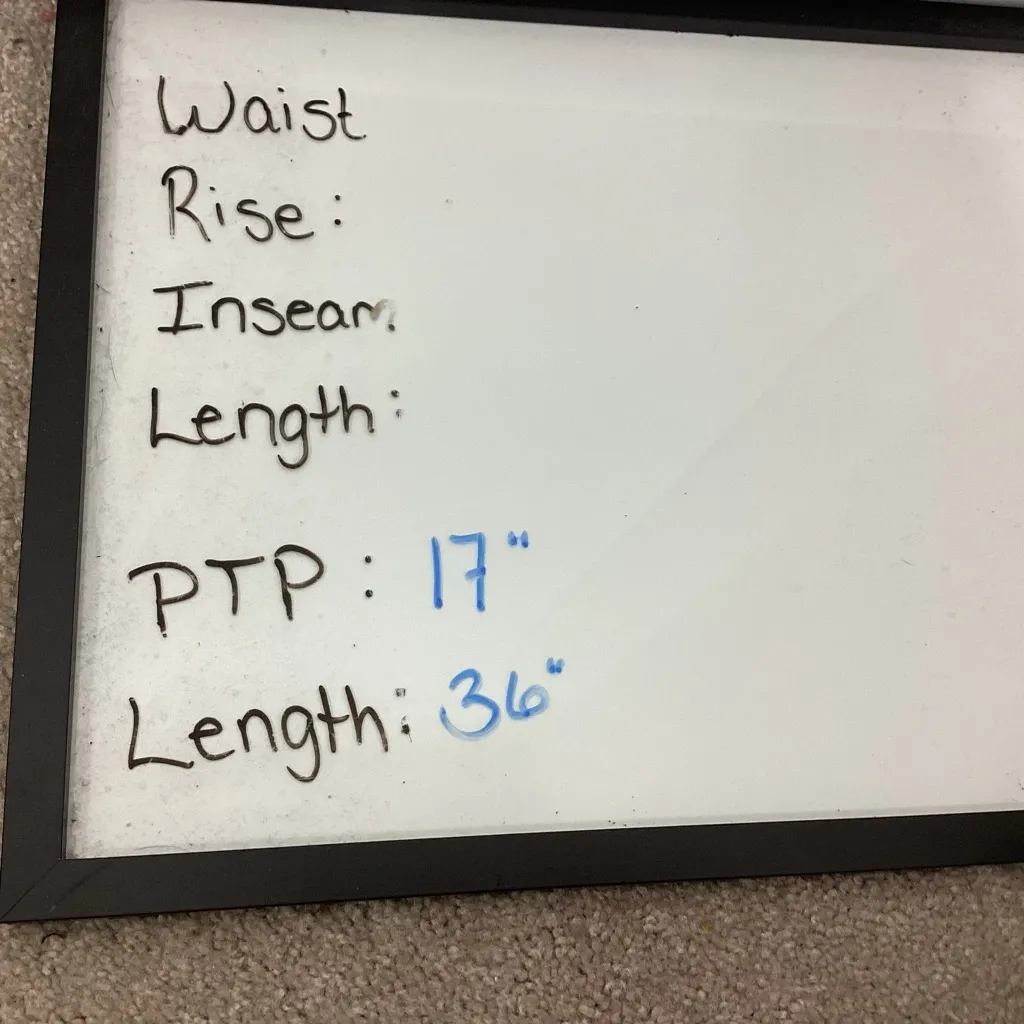 Waist
Rise:
Inseam:
Length:
PTP: 17"
Length: 36"